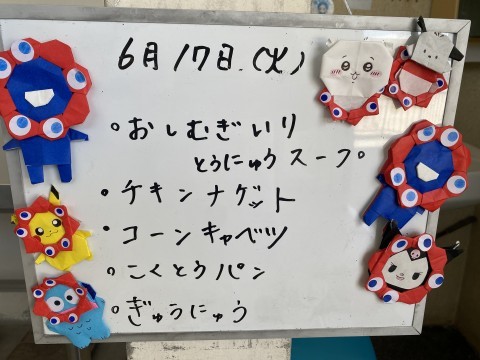 6月17日(火)
・おしむぎいり
とうにゅうスープ
・チキンナゲット
・コーンキャベツ
・こくとうパン
・ぎゅうにゅう